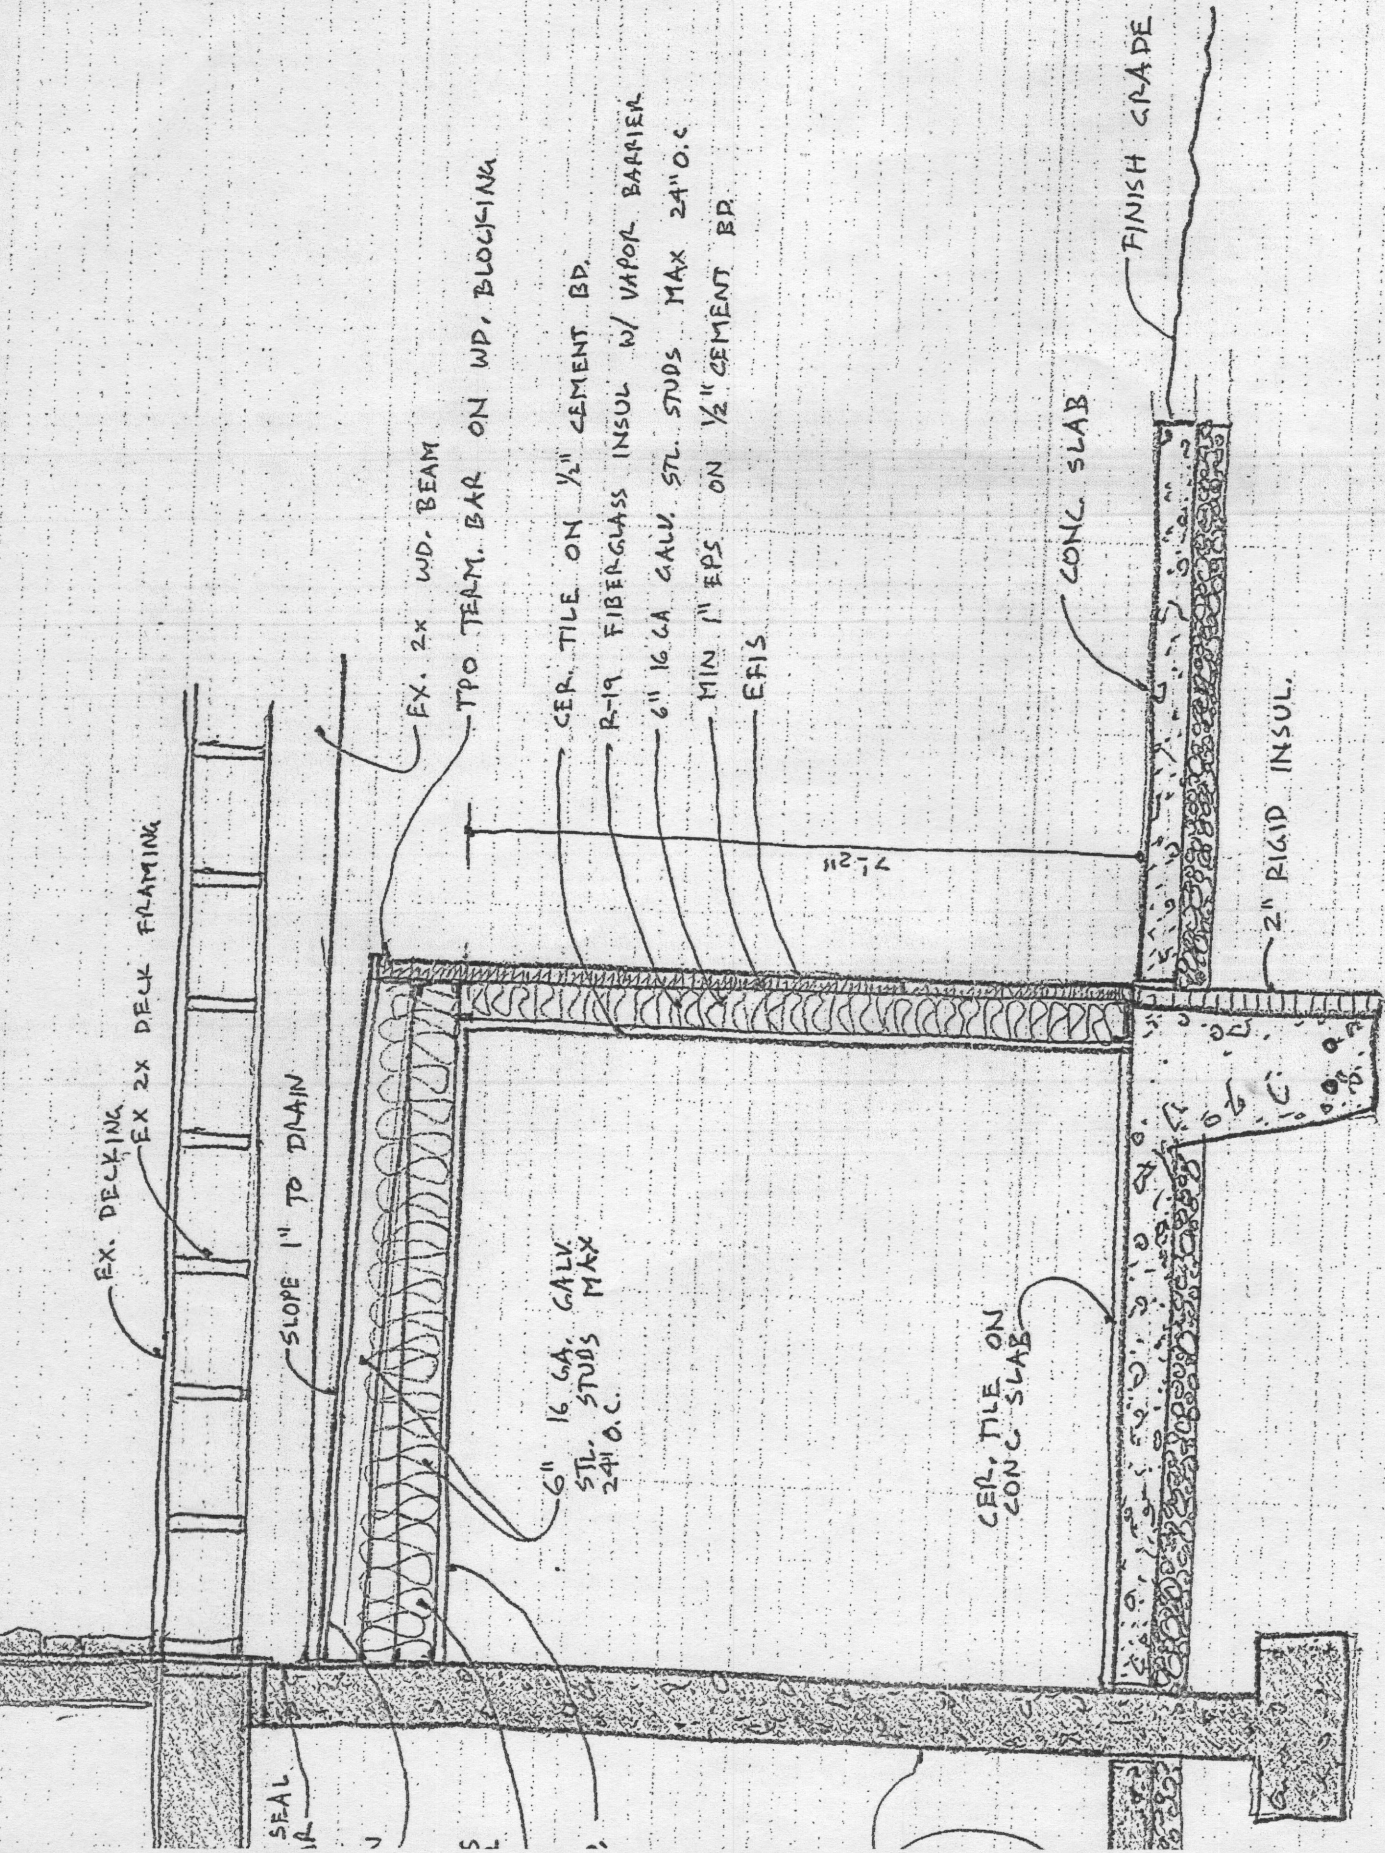 EX. DECKING
EX 2X DECK FRAMING
SLOPE 1" TO DRAIN
EX. 2x WD. BEAM
TPO TERM. BAR ON WD. BLOCKING
CER. TILE ON ½" CEMENT BD.
R-19 FIBERGLASS INSUL W/ VAPOR BARRIER
6" 16 GA GALV. STL. STUDS MAX 24" O.C
MIN 1" EPS ON ½" CEMENT BD.
EFIS
7'-2"
6" 16 GA. GALV.
STL. STUDS MAX
24" O.C.
CER. TILE ON
CONC SLAB
CONC. SLAB
FINISH GRADE
2" RIGID INSUL.
SEAL